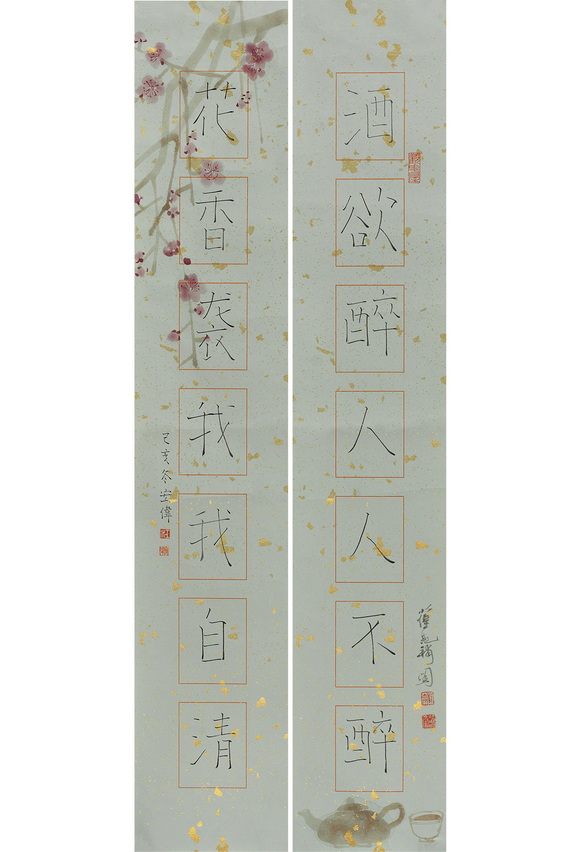 酒欲醉人人不醉
花香袭我我自清
己亥冬